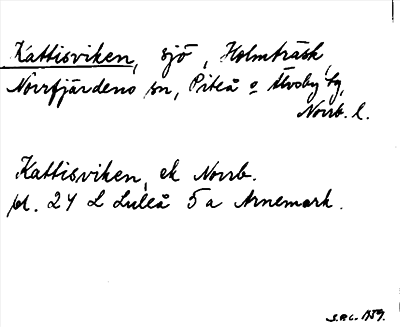 Kattisviken, sjö, Holmträsk,
Norrfjärdens sn, Piteå o Älvsby tg,
Norrb. l.
Kattisviken, ek Norrb.
bl. 24 L Luleå 5 a Arnemark.
S.A.C. 1959.